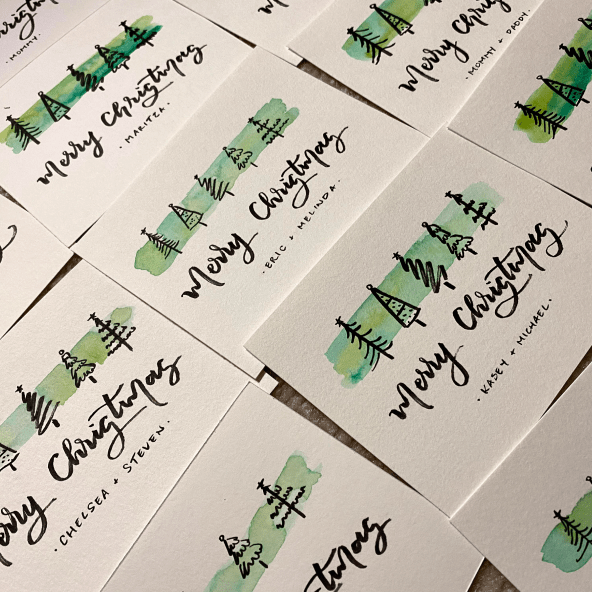 Christmas
· MOMMY ·
Merry Christmas
· MARITZA ·
Merry Christmas
· MOMMY + DADDY ·
Merry Christmas
· ERIC + MELINDA ·
Merry Christmas
· KASEY + MICHAEL ·
Merry Christmas
· CHELSEA + STEVEN ·
Christmas